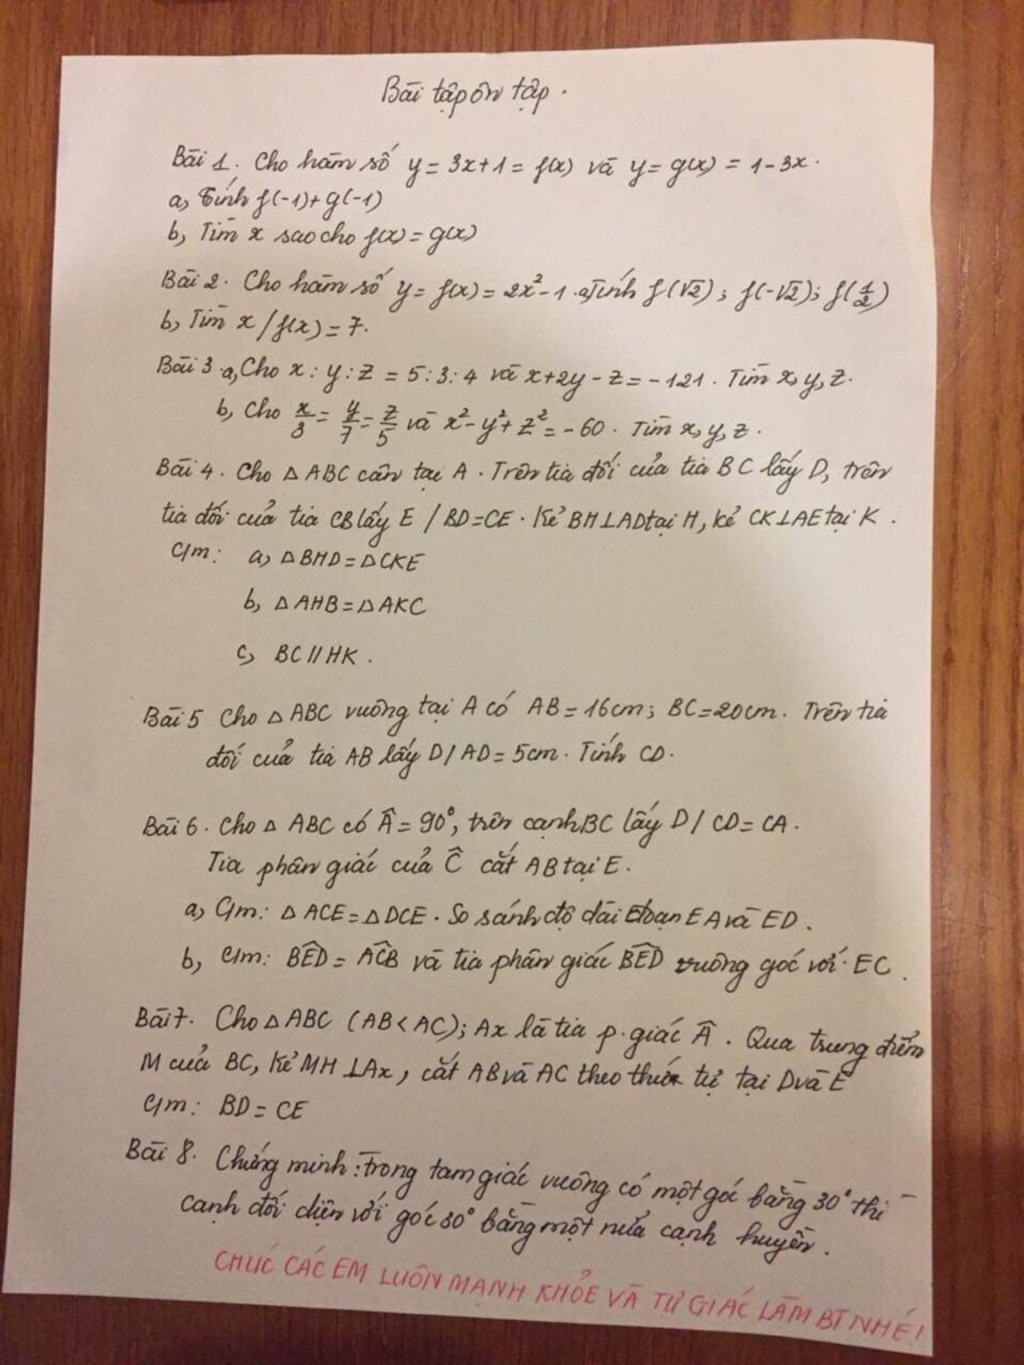 Bài tập ôn tập.
Bài 1. Cho hàm số y = 3x+1 = f(x) và y = g(x) = 1-3x.
a, Tính f(-1)+g(-1)
b, Tìm x sao cho f(x) = g(x)
Bài 2. Cho hàm số y = f(x) = 2x²-1. a, Tính f(√2); f(-√2); f(1/2)
b, Tìm x / f(x) = 7.
Bài 3 a, Cho x : y : z = 5 : 3 : 4 và x+2y-z = -121. Tìm x, y, z.
b, Cho x/3 = y/7 = z/5 và x²-y²+z² = -60. Tìm x, y, z.
Bài 4. Cho △ABC cân tại A. Trên tia đối của tia BC lấy D, trên
tia đối của tia CB lấy E / BD=CE. Kẻ BH⊥AD tại H, kẻ CK⊥AE tại K.
C/m: a, △BHD=△CKE
b, △AHB=△AKC
c, BC//HK.
Bài 5 Cho △ABC vuông tại A có AB=16cm; BC=20cm. Trên tia
đối của tia AB lấy D/AD=5cm. Tính CD.
Bài 6. Cho △ ABC có Â=90°, trên cạnh BC lấy D / CD=CA.
Tia phân giác của Ĉ cắt AB tại E.
a, C/m: △ACE=△DCE. So sánh độ dài đoạn EA và ED.
b, C/m: BÊD = AĈB và tia phân giác BÊD vuông góc với EC.
Bài 7. Cho △ABC (AB<AC); Ax là tia p.giác Â. Qua trung điểm
M của BC, kẻ MH⊥Ax, cắt AB và AC theo thứ tự tại D và E
C/m: BD=CE
Bài 8. Chứng minh: Trong tam giác vuông có một góc bằng 30° thì
cạnh đối diện với góc 30° bằng một nửa cạnh huyền.
CHÚC CÁC EM LUÔN MẠNH KHỎE VÀ TỰ GIÁC LÀM BT NHÉ!